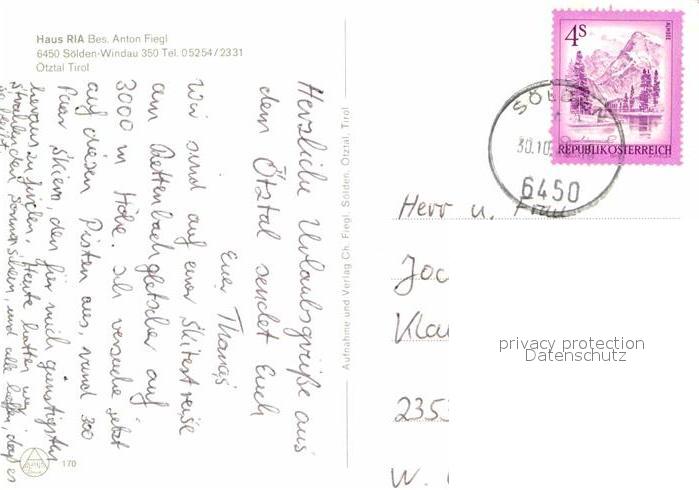 Haus RIA Bes. Anton Fiegl
6450 Sölden-Windau 350 Tel. 05254/2331
Ötztal Tirol
Herzliche Urlaubsgrüße aus
dem Ötztal sendet Euch
Euer Thomas
Wir sind auf einer Skitestreise
am Rettenbachgletscher auf
3000 m Höhe. Ich versuche jetzt
auf diesen Pisten aus, rund 300
Paar Skiern, den für mich günstigsten
herauszufinden. Heute hatten wir
strahlenden Sonnenschein, und alle hoffen, daß es
so bleibt.
170
Aufnahme und Verlag Ch. Fiegl, Sölden, Ötztal, Tirol
4S
ALMSEE
REPUBLIK ÖSTERREICH
SÖLDEN
30.10.
6450
Herr u. Frau
Joc
Kla
235
W.
privacy protection
Datenschutz